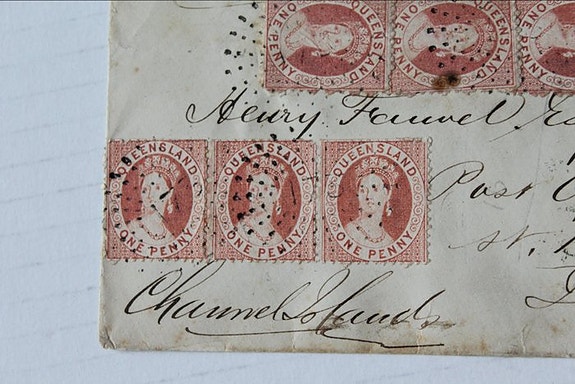 QUEENSLAND ONE PENNY
QUEENSLAND ONE PENNY
QUEENSLAND ONE PENNY
Henry Fauvel
QUEENSLAND ONE PENNY
QUEENSLAND ONE PENNY
QUEENSLAND ONE PENNY
Post
St.
Channel Islands